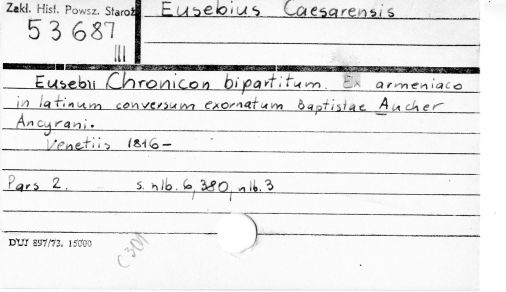 Zakł. Hist. Powsz. Staroż.
53687
III
Eusebius Caesarensis
Eusebii Chronicon bipartitum. Ex armeniaco
in latinum conversum exornatum Baptistae Aucher
Ancyrani.
Venetiis 1816-
Pars 2. s. nlb. 6, 380, nlb. 3
DUJ 897/73. 15000
C301